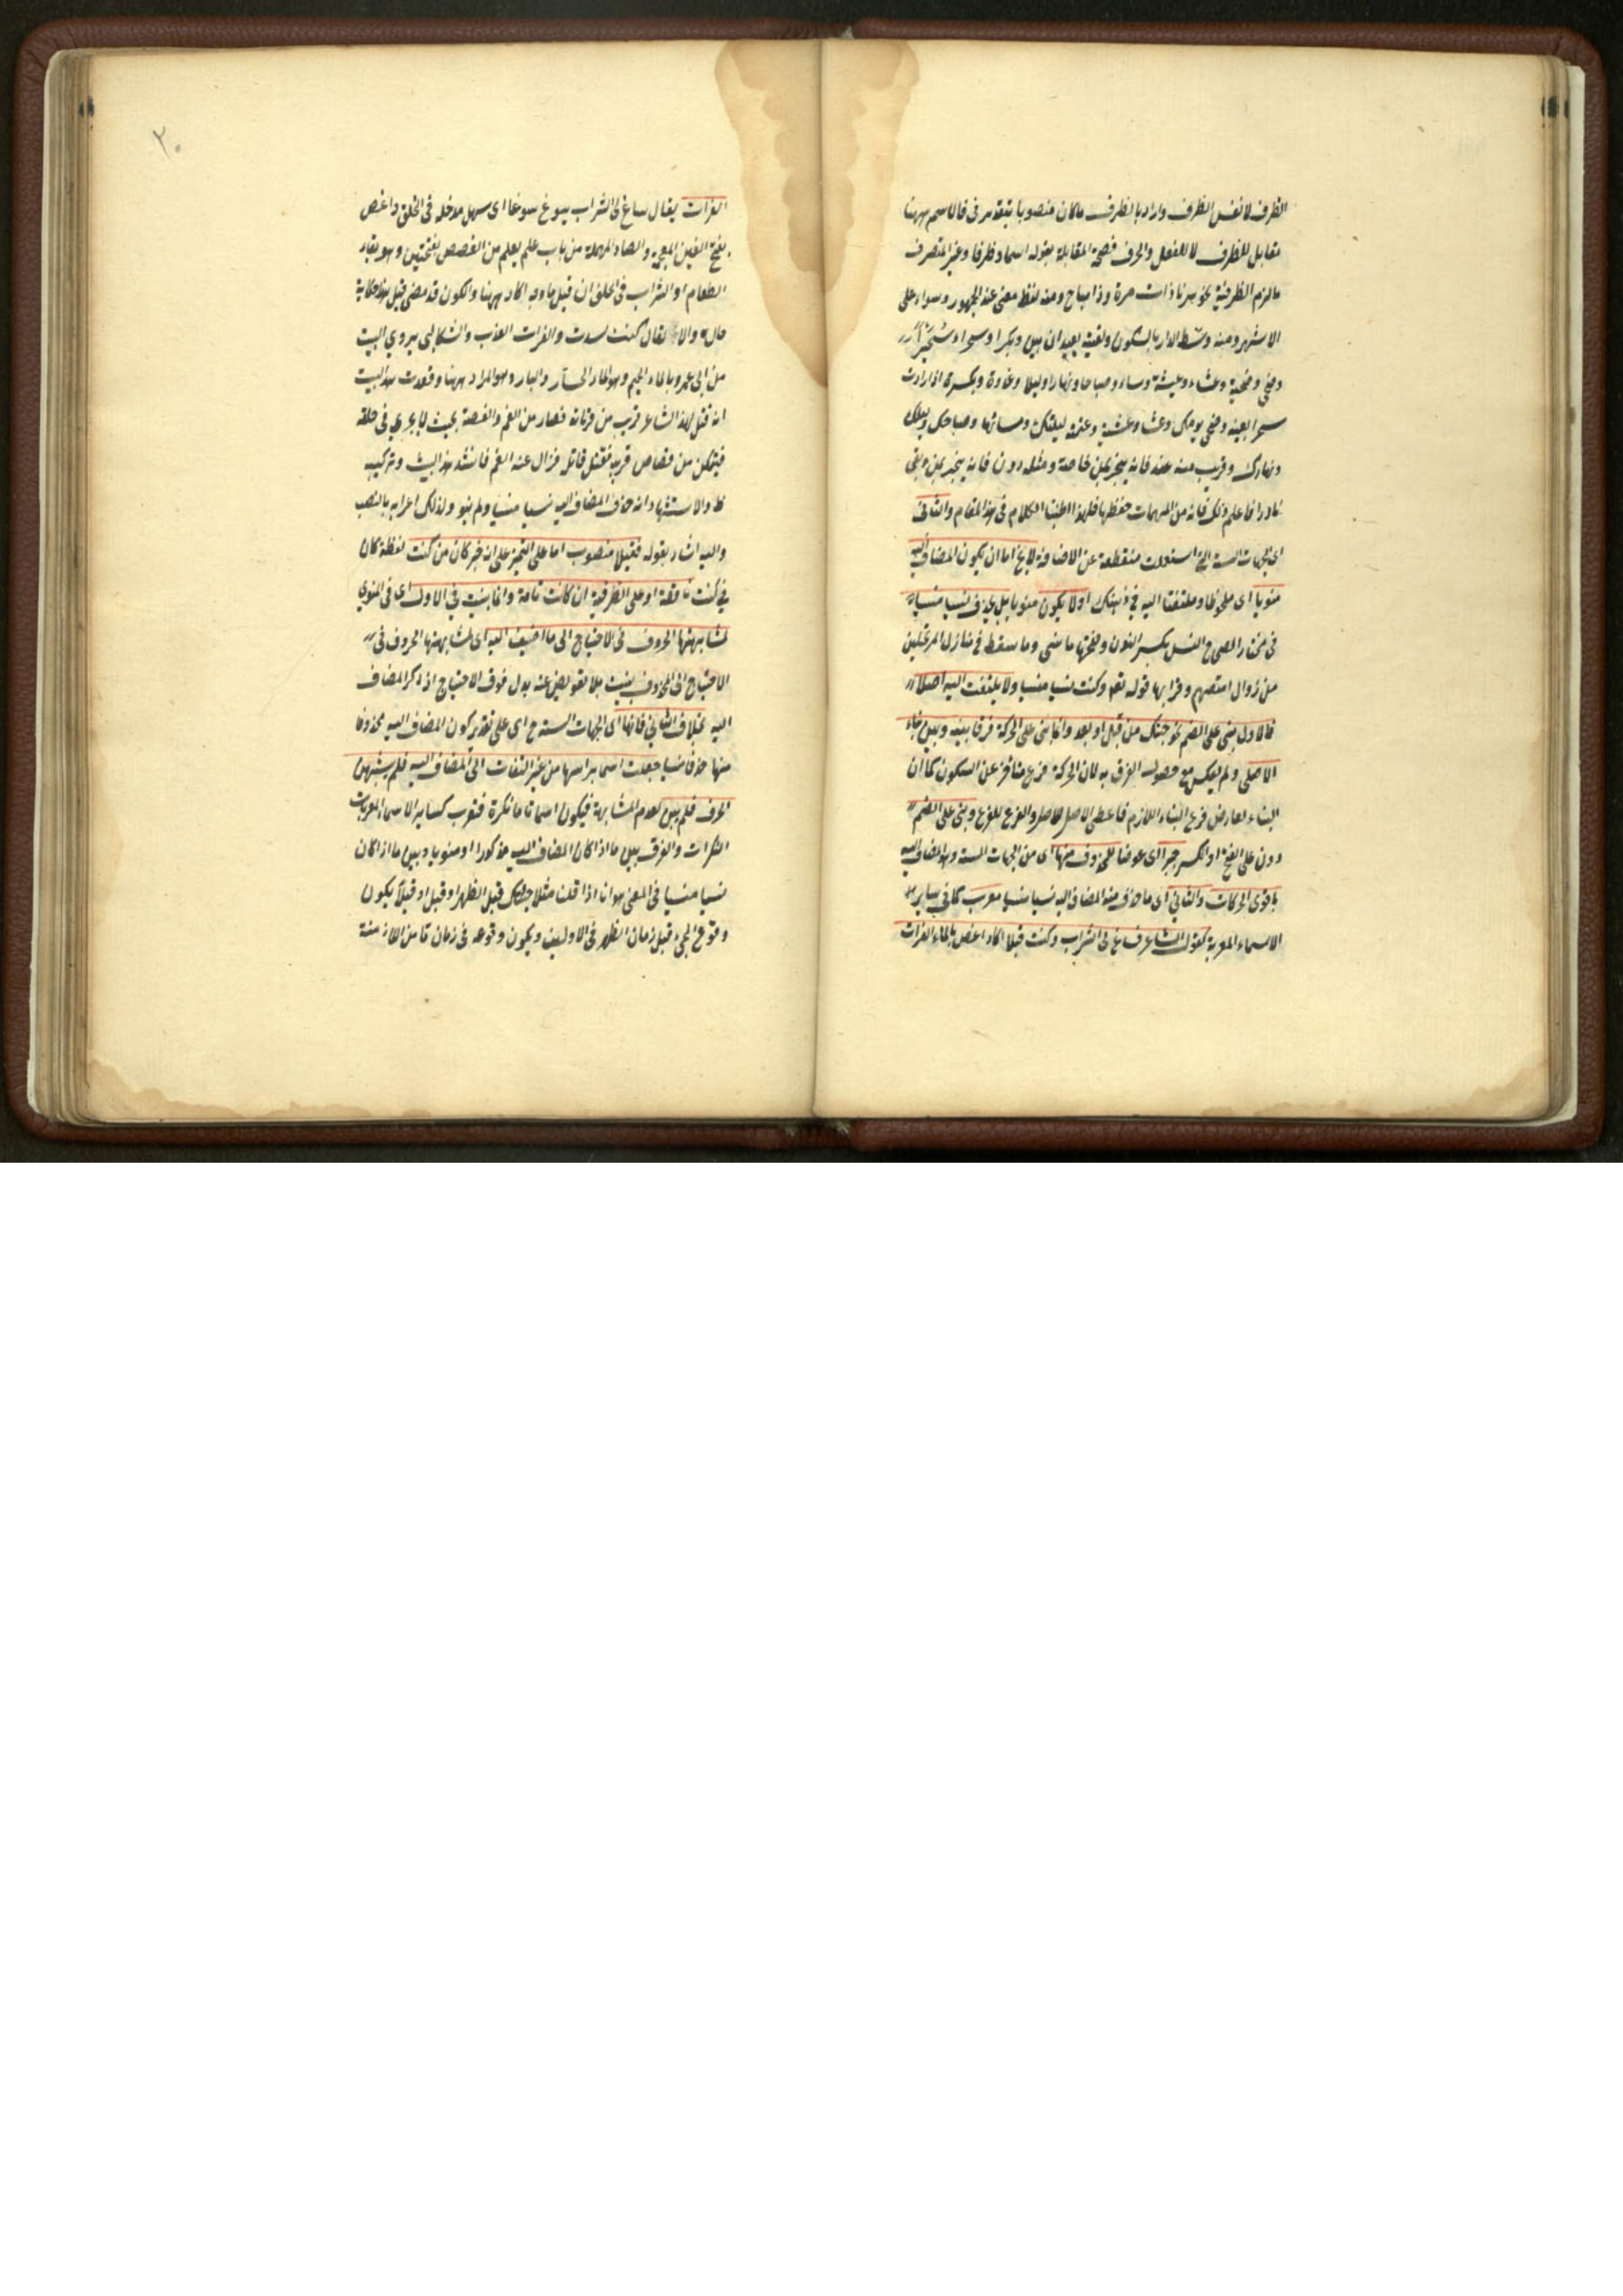 الظرف لا نفس الظرف واراد بالظرف ماكان منصوبا بتقدير فى فالاسم ههنا
مقابل للظرف لا للفعل والحرف فصح المقابلة بقوله اسما وظرفا وغير المتصرف
مالزم الظرفية نحو سرنا ذات مرة وذا صباح ومنه لفظ معنى عند الجمهور وسواء على
الاشهر ومنه وسط الدار بالسكون ولقيته بعيدان بين وبكرا وسحرا وسُحَيْرًا
وضحى وضحية وعشاء وعيشة ومساء وصباحا ونهارا وليلا وغدوة وبكرة اذا اردت
سحرا بعينه وضحى يومك وعشاء وعشية وعتمة ليلتك ومسائها وصباحك وليلك
ونهارك وقريب منه عند فانه ينجر بمن خاصة ومثله دون فانه ينجر بمن وبفى
نادرا فاعلم ذلك فانه من المهمات حفظها فلهذا اطنبنا الكلام فى هذا المقام والثانى
اى الجهات الستة التى استعملت منقطعة عن الاضافة لا يخ اما ان يكون المضاف اليه
منويا اى ملحوظا وملتفتا اليه فى ذهنك اولا يكون منويا بل يحذف نسيا منسيا
فى مختار الصحاح النسى بكسر النون وفتحها ما نسى وما سقط فى منازل المرتحلين
من رذال امتعتهم وقرأ بها قوله تعا وكنت نسيا منسيا ولا يلتفت اليه اصلا
فالاول بنى على الضم نحو جئتك من قبل او بعد وانما بنى على الحركة فرقا بينه وبين بناء
الاصلى ولم يعكس مع حصول الفرق به لان الحركة فرع متأخر عن السكون كما ان
البناء العارض فرع البناء اللازم فاعطى الاصل للاصل والفرع للفرع وبنى على الضم
دون على الفتح او الكسر جبرا اى عوضا للمحذوف منها اى من الجهات الستة وهو المضاف اليه
باقوى الحركات والثانى اى ما حذف منه المضاف اليه نسيا منسيا معرب كما فى ساير
الاسماء المعربة كقول الشاعر فساغ لى الشراب وكنت قبلا اكاد اغص بالماء الفرات
٢٠
الفرات يقال ساغ لى الشراب يسوغ سوغا اى سهل مدخله فى الحلق واغص
بفتح الغين المعجمة والصاد المهملة من باب علم يعلم من الغصص بفتحتين وهو بقاء
الطعام او الشراب فى الحلق ان قيل ما وجه اكاد ههنا والكون قد مضى قيل هذا حكاية
حال والا لقال كنت كدت والفرات العذب والشكالبى يروي البيت
من ابى عمرو بالماء الحميم وهو الماء الحار والبارد وهو المراد ههنا وقصت هذا البيت
انه قتل لهذا الشاعر قريب من قرباته فصار من الغم والغصة بحيث لا يجري فى حلقه
فيتمكن من قصاص قريبه فقتل قاتله فزال عنه الغم فانشد هذا البيت وتركيبه
ظ والاستشهاد انه حذف المضاف اليه نسيا منسيا ولم ينو ولذلك اعرابه بالنصب
واليه اشار بقوله فقبلا منصوب اما على التميز على انه خبر كان من كنت لفظة كان
فى كنت ناقصة او على الظرفية ان كانت تامة وانما بنيت فى الاول اى فى المنوي
لمشابهتها الحروف فى الاحتياج الى ما اضيف اليه اى لمشابهتها الحروف فى
الاحتياج الى المحذوف بنيت بلا تعويض عنه بدل فوق الاحتياج اذ ذكر المضاف
اليه بخلاف الثانى فانها اى الجهات الستة ح اى على تقدير كون المضاف اليه محذوفا
منها حذفا منسيا جعلت اسما براسها من غير التفات الى المضاف اليه فلم يشبهن
الحرف فلم يبن لعدم المشابهة فيكون اسما تاما نكرة فتعرب كساير الاسماء المعربات
النكرات والفرق بين ما اذا كان المضاف اليه مذكورا او منويا وبين ما اذا كان
نسيا منسيا فى المعنى هو انا اذا قلت مثلا جئتك قبل الظهر او قبل او قبلاً يكون
وقوع المجئ قبل زمان الظهر فى الاولين ويكون وقوعه فى زمان تا من الازمنة